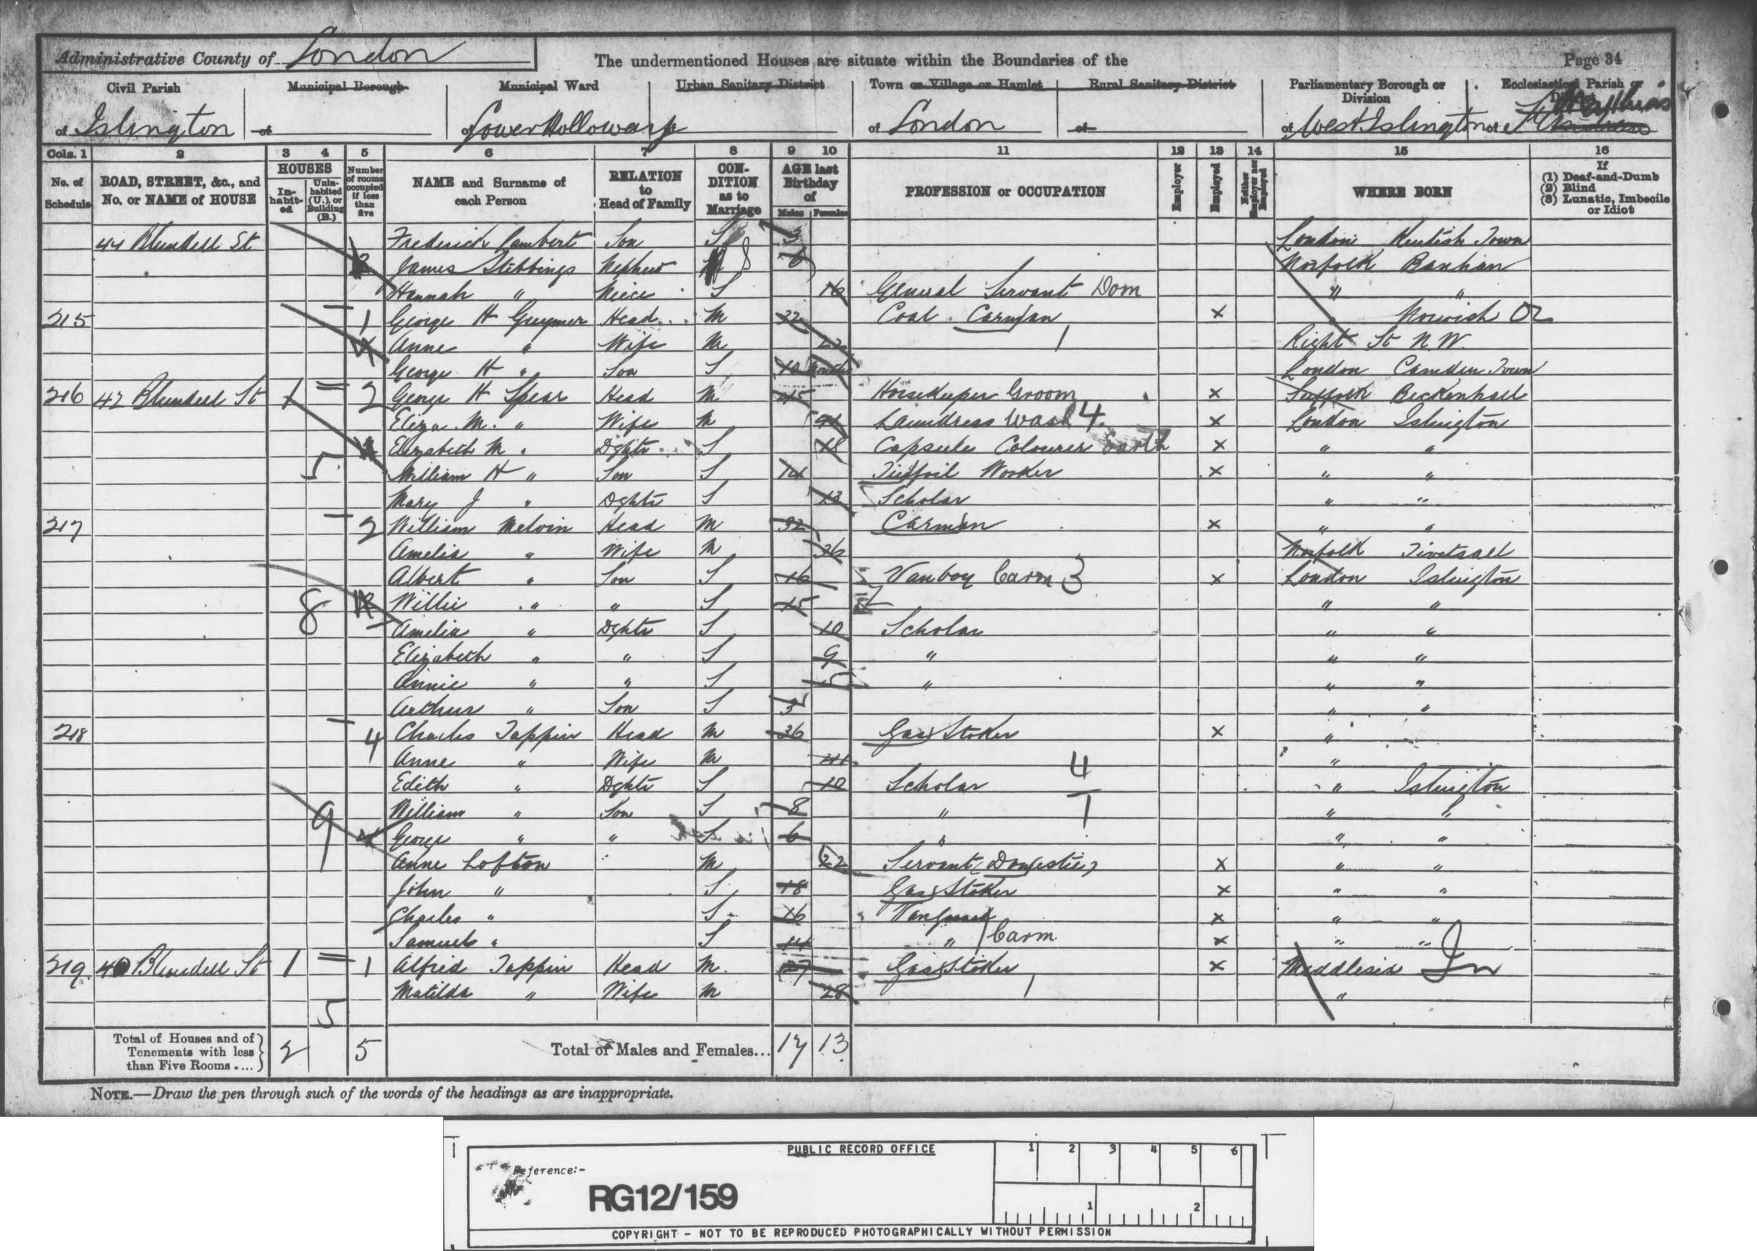 Administrative County of London The undermentioned Houses are situate within the Boundaries of the Page 34
Civil Parish Municipal Borough Municipal Ward Urban Sanitary District Town or Village or Hamlet Rural Sanitary District Parliamentary Borough or Division Ecclesiastical Parish or District
of Islington of of Lower Holloway of London of of West Islington of St Matthias
Cols. 1 2 3 4 5 6 7 8 9 10 11 12 13 14 15 16
No. of Schedule ROAD, STREET, &c., and No. or NAME of HOUSE HOUSES In-habit-ed Unin-habited (U.), or Building (B.) Number of rooms occupied if less than five NAME and Surname of each Person RELATION to Head of Family CON-DITION as to Marriage AGE last Birthday of Males Females PROFESSION or OCCUPATION Employer Employed Neither Employer nor Employed WHERE BORN If (1) Deaf-and-Dumb (2) Blind (3) Lunatic, Imbecile or Idiot
44 Blundell St Frederick Lambert Son S 3 London Kentish Town
James Stebbings Nephew S Norfolk Banham
Hannah " Neice S 16 General Servant Dom " "
215 1 George H Guymer Head M 22 Coal Carman x Norwich
Anne " Wife M St N.W
George H " Son S London Camden Town
216 42 Blundell St 1 2 George H Spear Head M 45 Horsekeeper Groom x Suffolk Beckenhall
Eliza M. " Wife M 41 Laundress Wash 4 x London Islington
Elizabeth M " Dghtr S 18 Capsule Colourer x " "
5 William H " Son S 14 Tinfoil Worker x " "
Mary J " Dghtr S 13 Scholar " "
217 2 William Melvin Head M Carman x " "
Amelia " Wife M 36 Norfolk Tivetsall
Albert " Son S 16 Vanboy Carm 3 x London Islington
8 Willie " " S 15 " "
Amelia " Dghtr S 10 Scholar " "
Elizabeth " " S 9 " " "
Annie " " S 5 " " "
Arthur " Son S 3 " "
218 4 Charles Tappin Head M 36 Gas Stoker x "
Anne " Wife M 41 4 "
Edith " Dghtr S 10 Scholar " Islington
9 William " Son S 8 " 1 " "
George " " S 6 " " "
Anne Lofton M 22 Servant (Domestic) x " "
John " S 18 Gas Stoker x " "
Charles " S 16 Van Guard x " "
Samuel " S 14 " Carm x " "
219 40 Blundell St 1 1 Alfred Tappin Head M 27 Gas Stoker x Middlesex
5 Matilda " Wife M 28 1 "
Total of Houses and of Tenements with less than Five Rooms .... 2 5 Total of Males and Females... 17 13
NOTE.—Draw the pen through such of the words of the headings as are inappropriate.
PUBLIC RECORD OFFICE 1 2 3 4 5 6
Reference:-
RG12/159 1 2
COPYRIGHT - NOT TO BE REPRODUCED PHOTOGRAPHICALLY WITHOUT PERMISSION